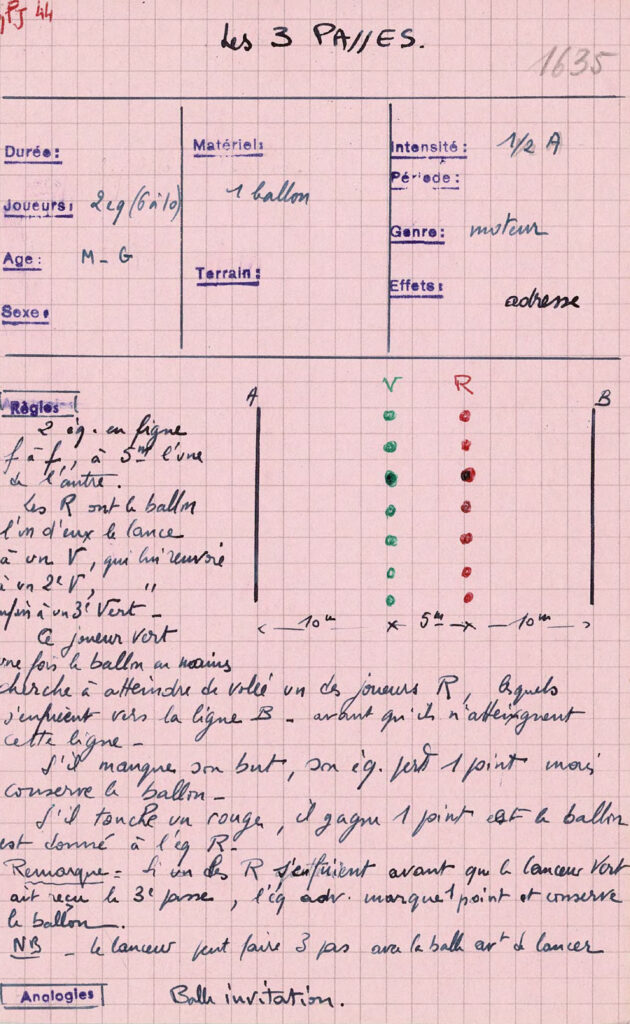 PJ 44
Les 3 PASSES.
1635
Durée:
Joueurs: 2 eq (6 à 10)
Age: M - G
Sexe:
Matériel:
1 ballon
Terrain:
Intensité: 1/2 A
Période:
Genre: moteur
Effets: adresse
Règles
A V R B
2 éq. en ligne
f à f, à 5m l'une
de l'autre.
Les R ont le ballon
l'un d'eux le lance
à un V, qui lui renvoie
à un 2e V, "
enfin à un 3e Vert -
Ce joueur vert
une fois le ballon en mains
cherche à atteindre de volée un des joueurs R, lesquels
s'enfuient vers la ligne B - avant qu'ils n'atteignent
cette ligne -
S'il manque son but, son éq. perd 1 point mais
conserve le ballon -
S'il touche un rouge, il gagne 1 point et le ballon
est donné à l'éq R -
Remarque = Si un des R s'enfuient avant que le lanceur Vert
ait reçu la 3e passe, l'éq adv. marque 1 point et conserve
le ballon.
NB - le lanceur peut faire 3 pas avec la balle avt de lancer
10m 5m 10m
Analogies Balle invitation.